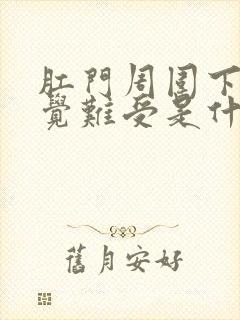 肛門周圍下
覺難受是什
舊月安好